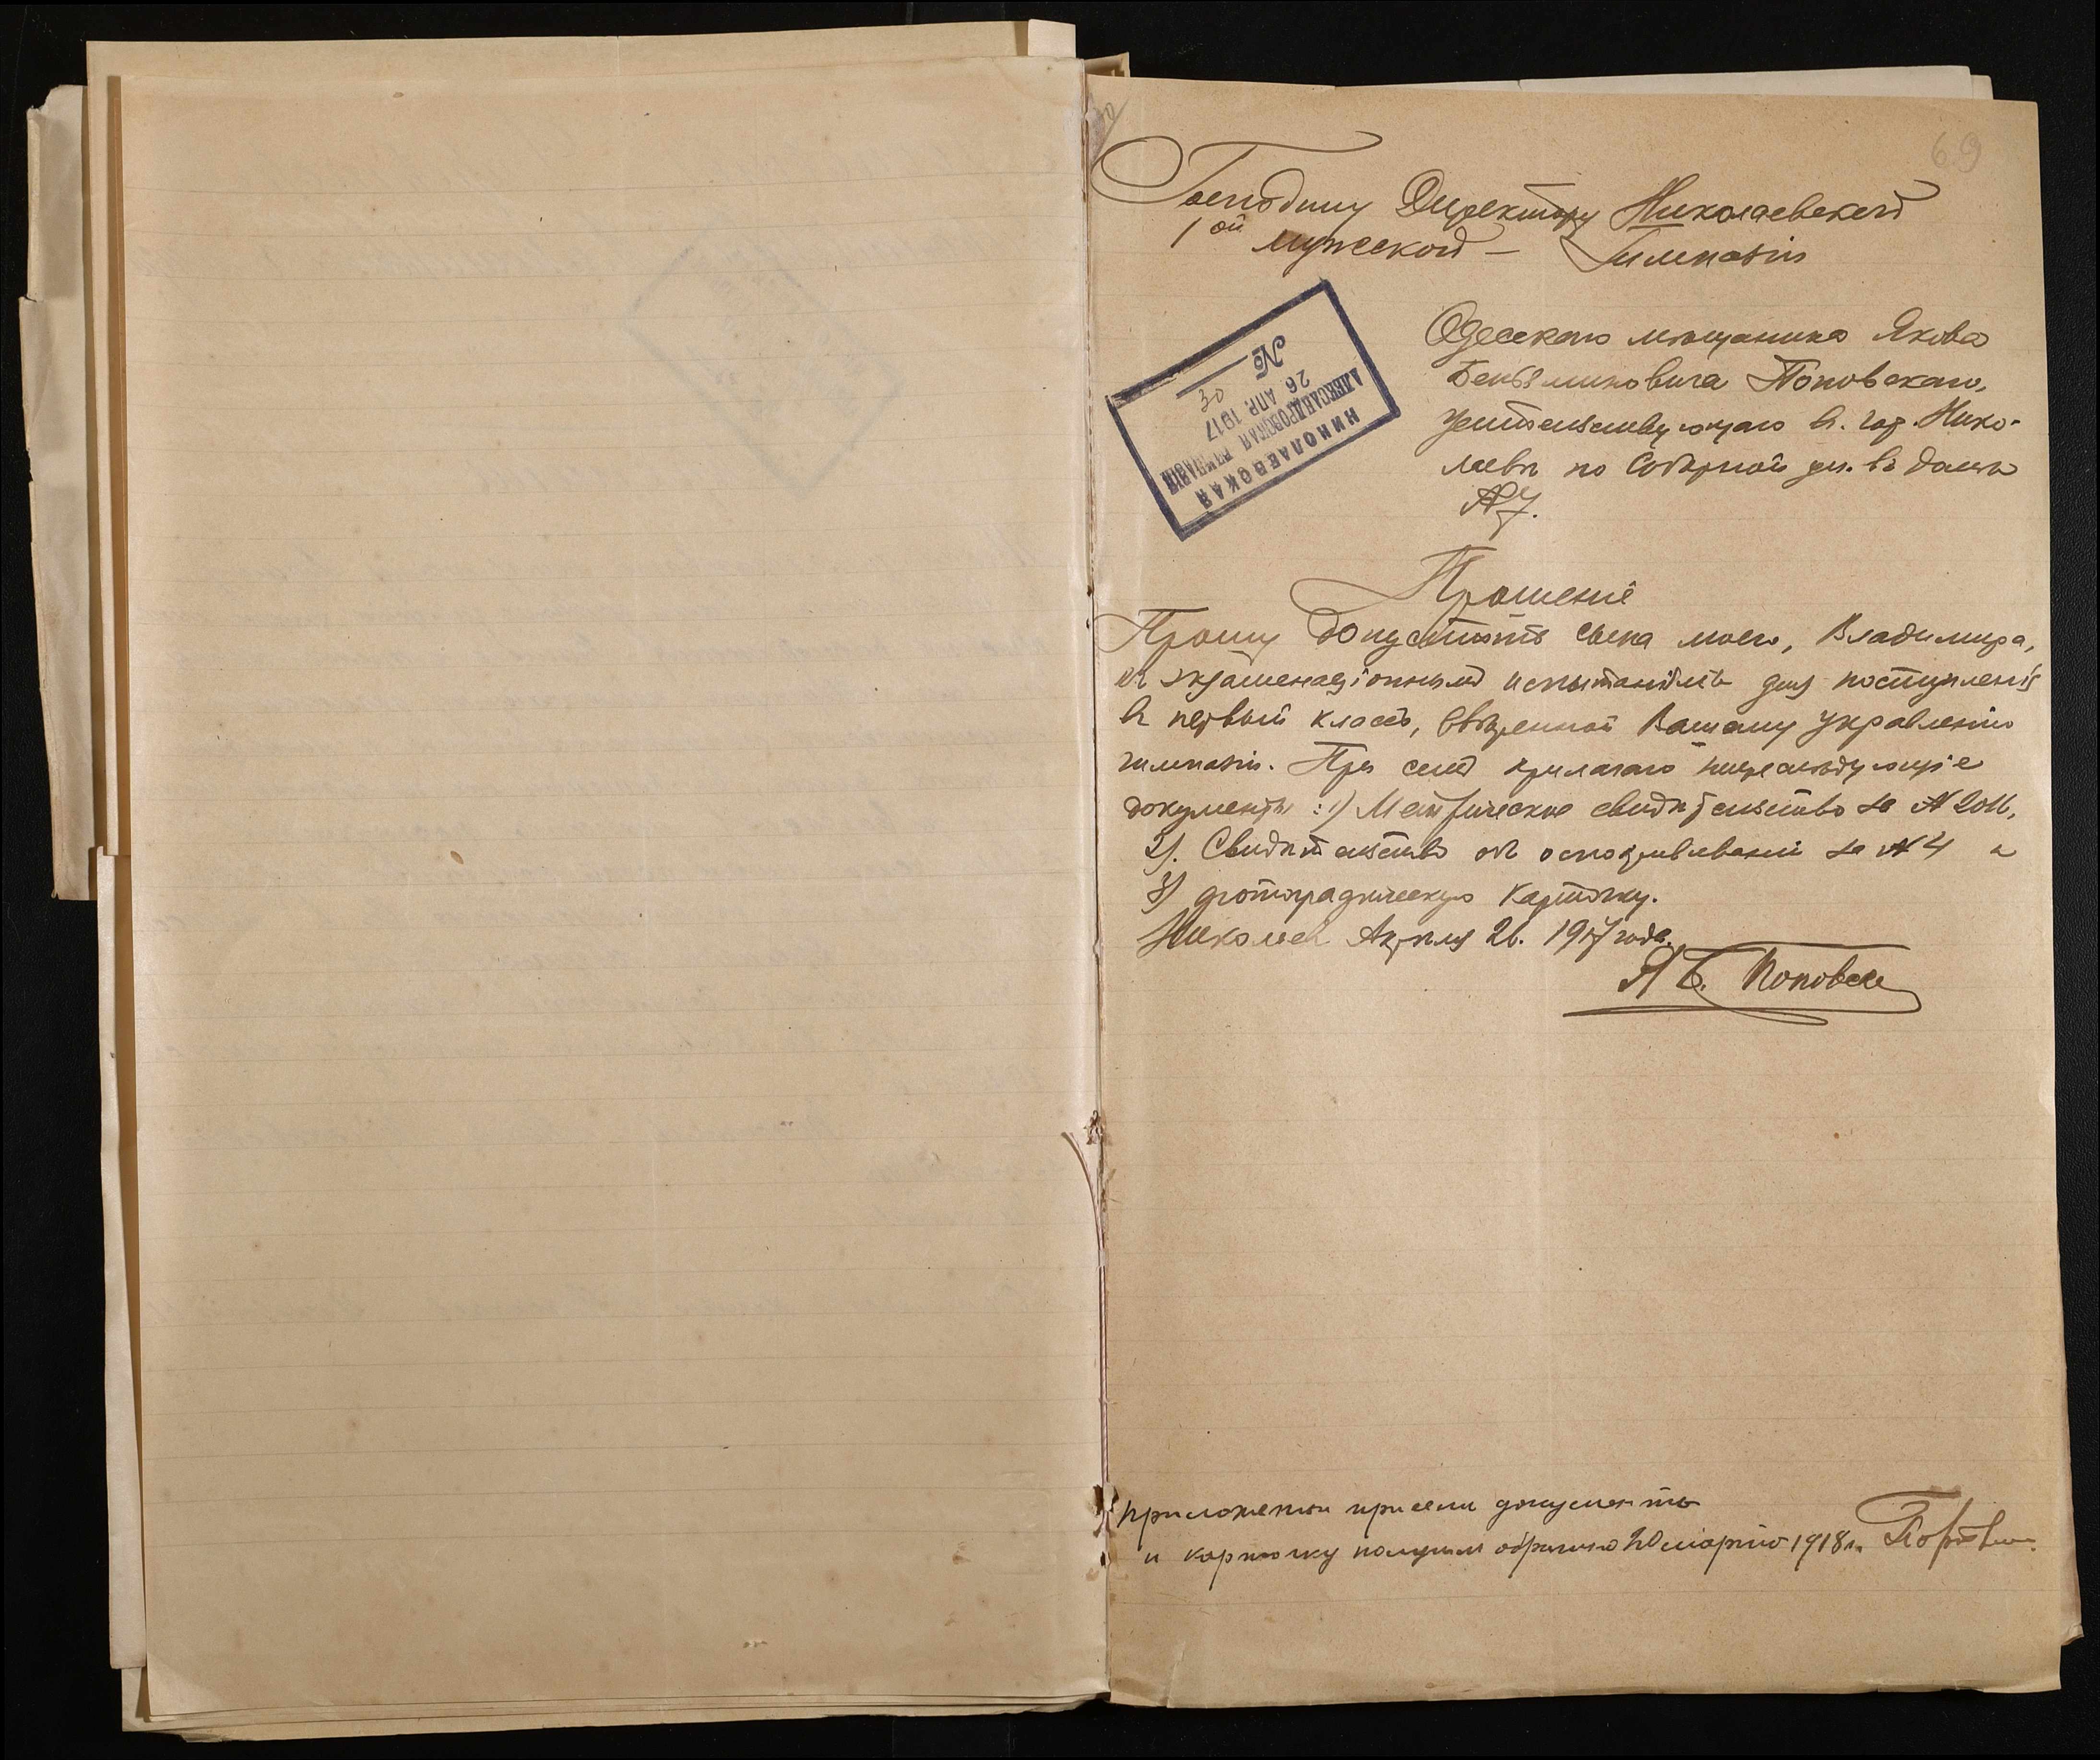 69
Господину Директору Николаевской
1ой мужской – Гимназіи
НИКОЛАЕВСКАЯ
АЛЕКСАНДРОВСКАЯ ГИМНАЗІЯ
26 АПР. 1917
№ 30
Одесскаго мѣщанина Якова
Беньяминовича Поповскаго,
жительствующаго въ гор. Нико-
лаевѣ по Соборной ул. въ домѣ
№ 7.
Прошеніе
Прошу допустить сына моего, Владимира,
къ экзаменаціоннымъ испытаніямъ для поступленія
въ первый классъ, ввѣренной Вашему управленію
гимназіи. При семъ прилагаю нижеслѣдующіе
документы: 1) Метрическое свидѣтельство за №
2). Свидѣтельство объ оспопрививаніи за № 4 и
3) фотографическую карточку.
Николаевъ Апрѣля 26. 1917 года.
Я Б. Поповск
Приложенные при семъ документы
и карточку получилъ обратно 20 марта 1918 г.